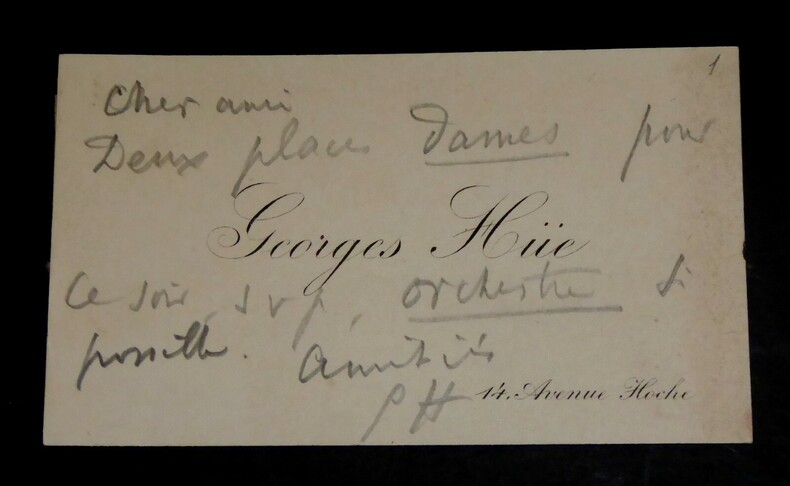 1
Cher ami
Deux places dames pour
Georges Hüe
Ce soir, s v p, orchestre si
possible. Amitiés
GH
14. Avenue Hoche